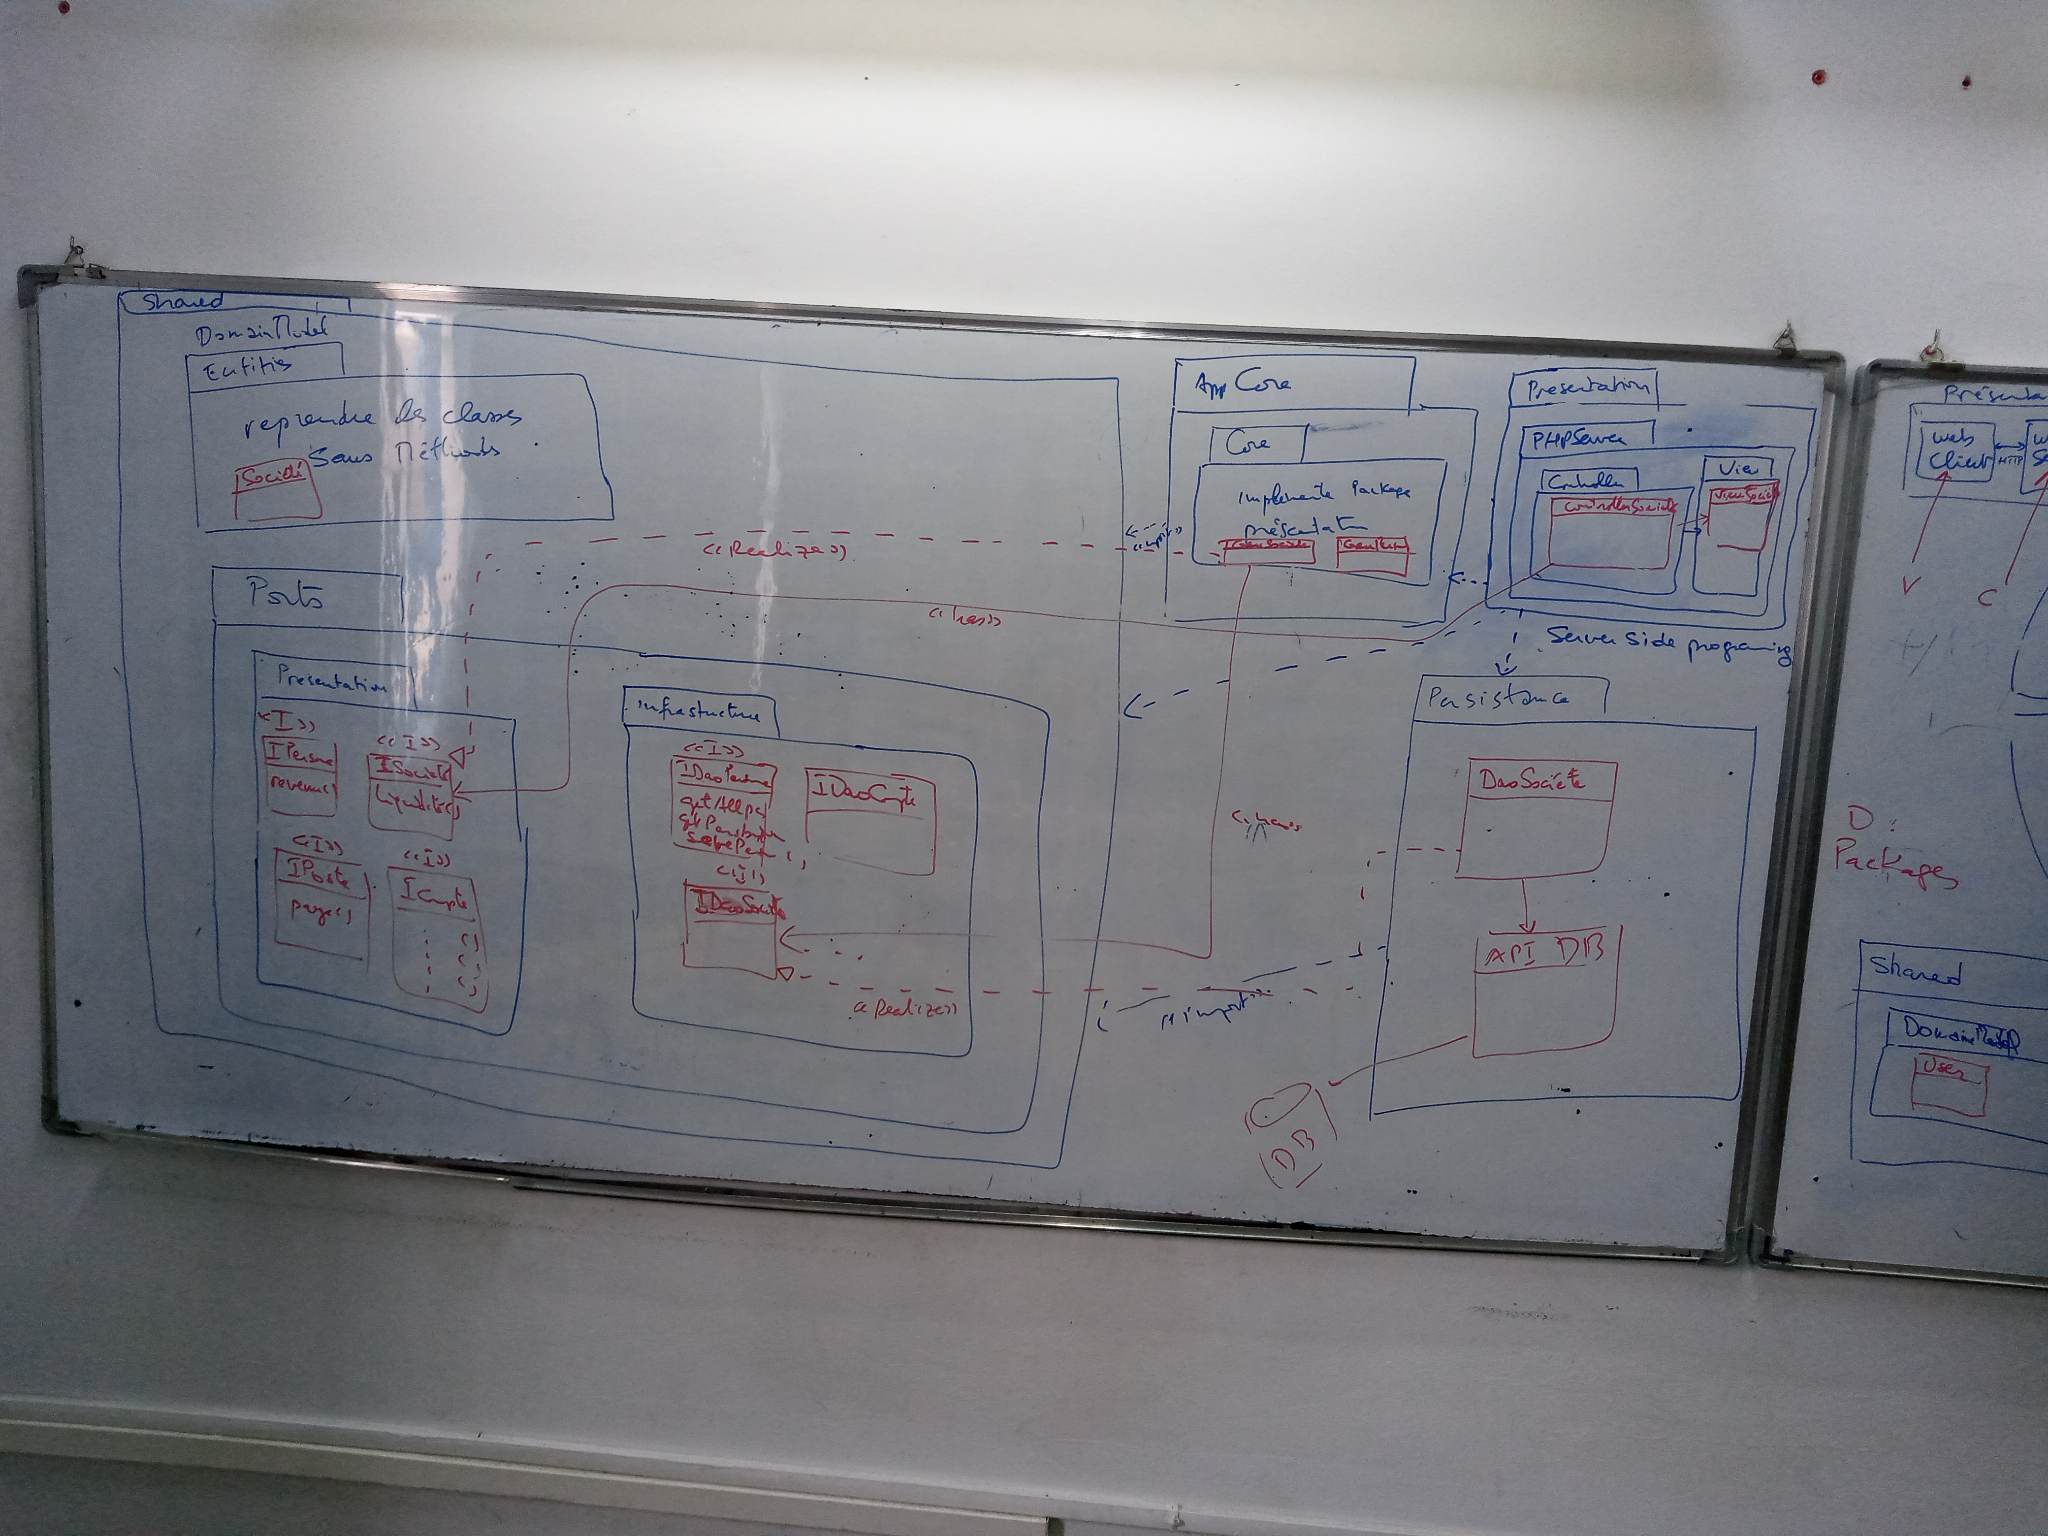 Shared
DomainModel
Entities
reprendre les classes
Sans Méthodes
Société
Ports
Presentation
<I>>
IPersonne
revenu()
<<I>>
ISociété
Liquidité()
<I>>
IPoste
paye()
<<I>>
ICompte
()
()
()
Infrastructure
<<I>>
IDaoPersonne
IDaoCompte
<<I>>
IDaoSociété
<<Realize>>
<<has>>
<<Realize>>
<<import>>
App Core
Core
Implémente Package
présentation
CoreSociété
Presentation
PHPServer
Controller
ControllerSociété
View
ViewSociété
Server Side programing
Persistance
DaoSociété
API DB
DB
Présenta
web
Client
HTTP
V
C
D:
Packages
Shared
DomainModel
User